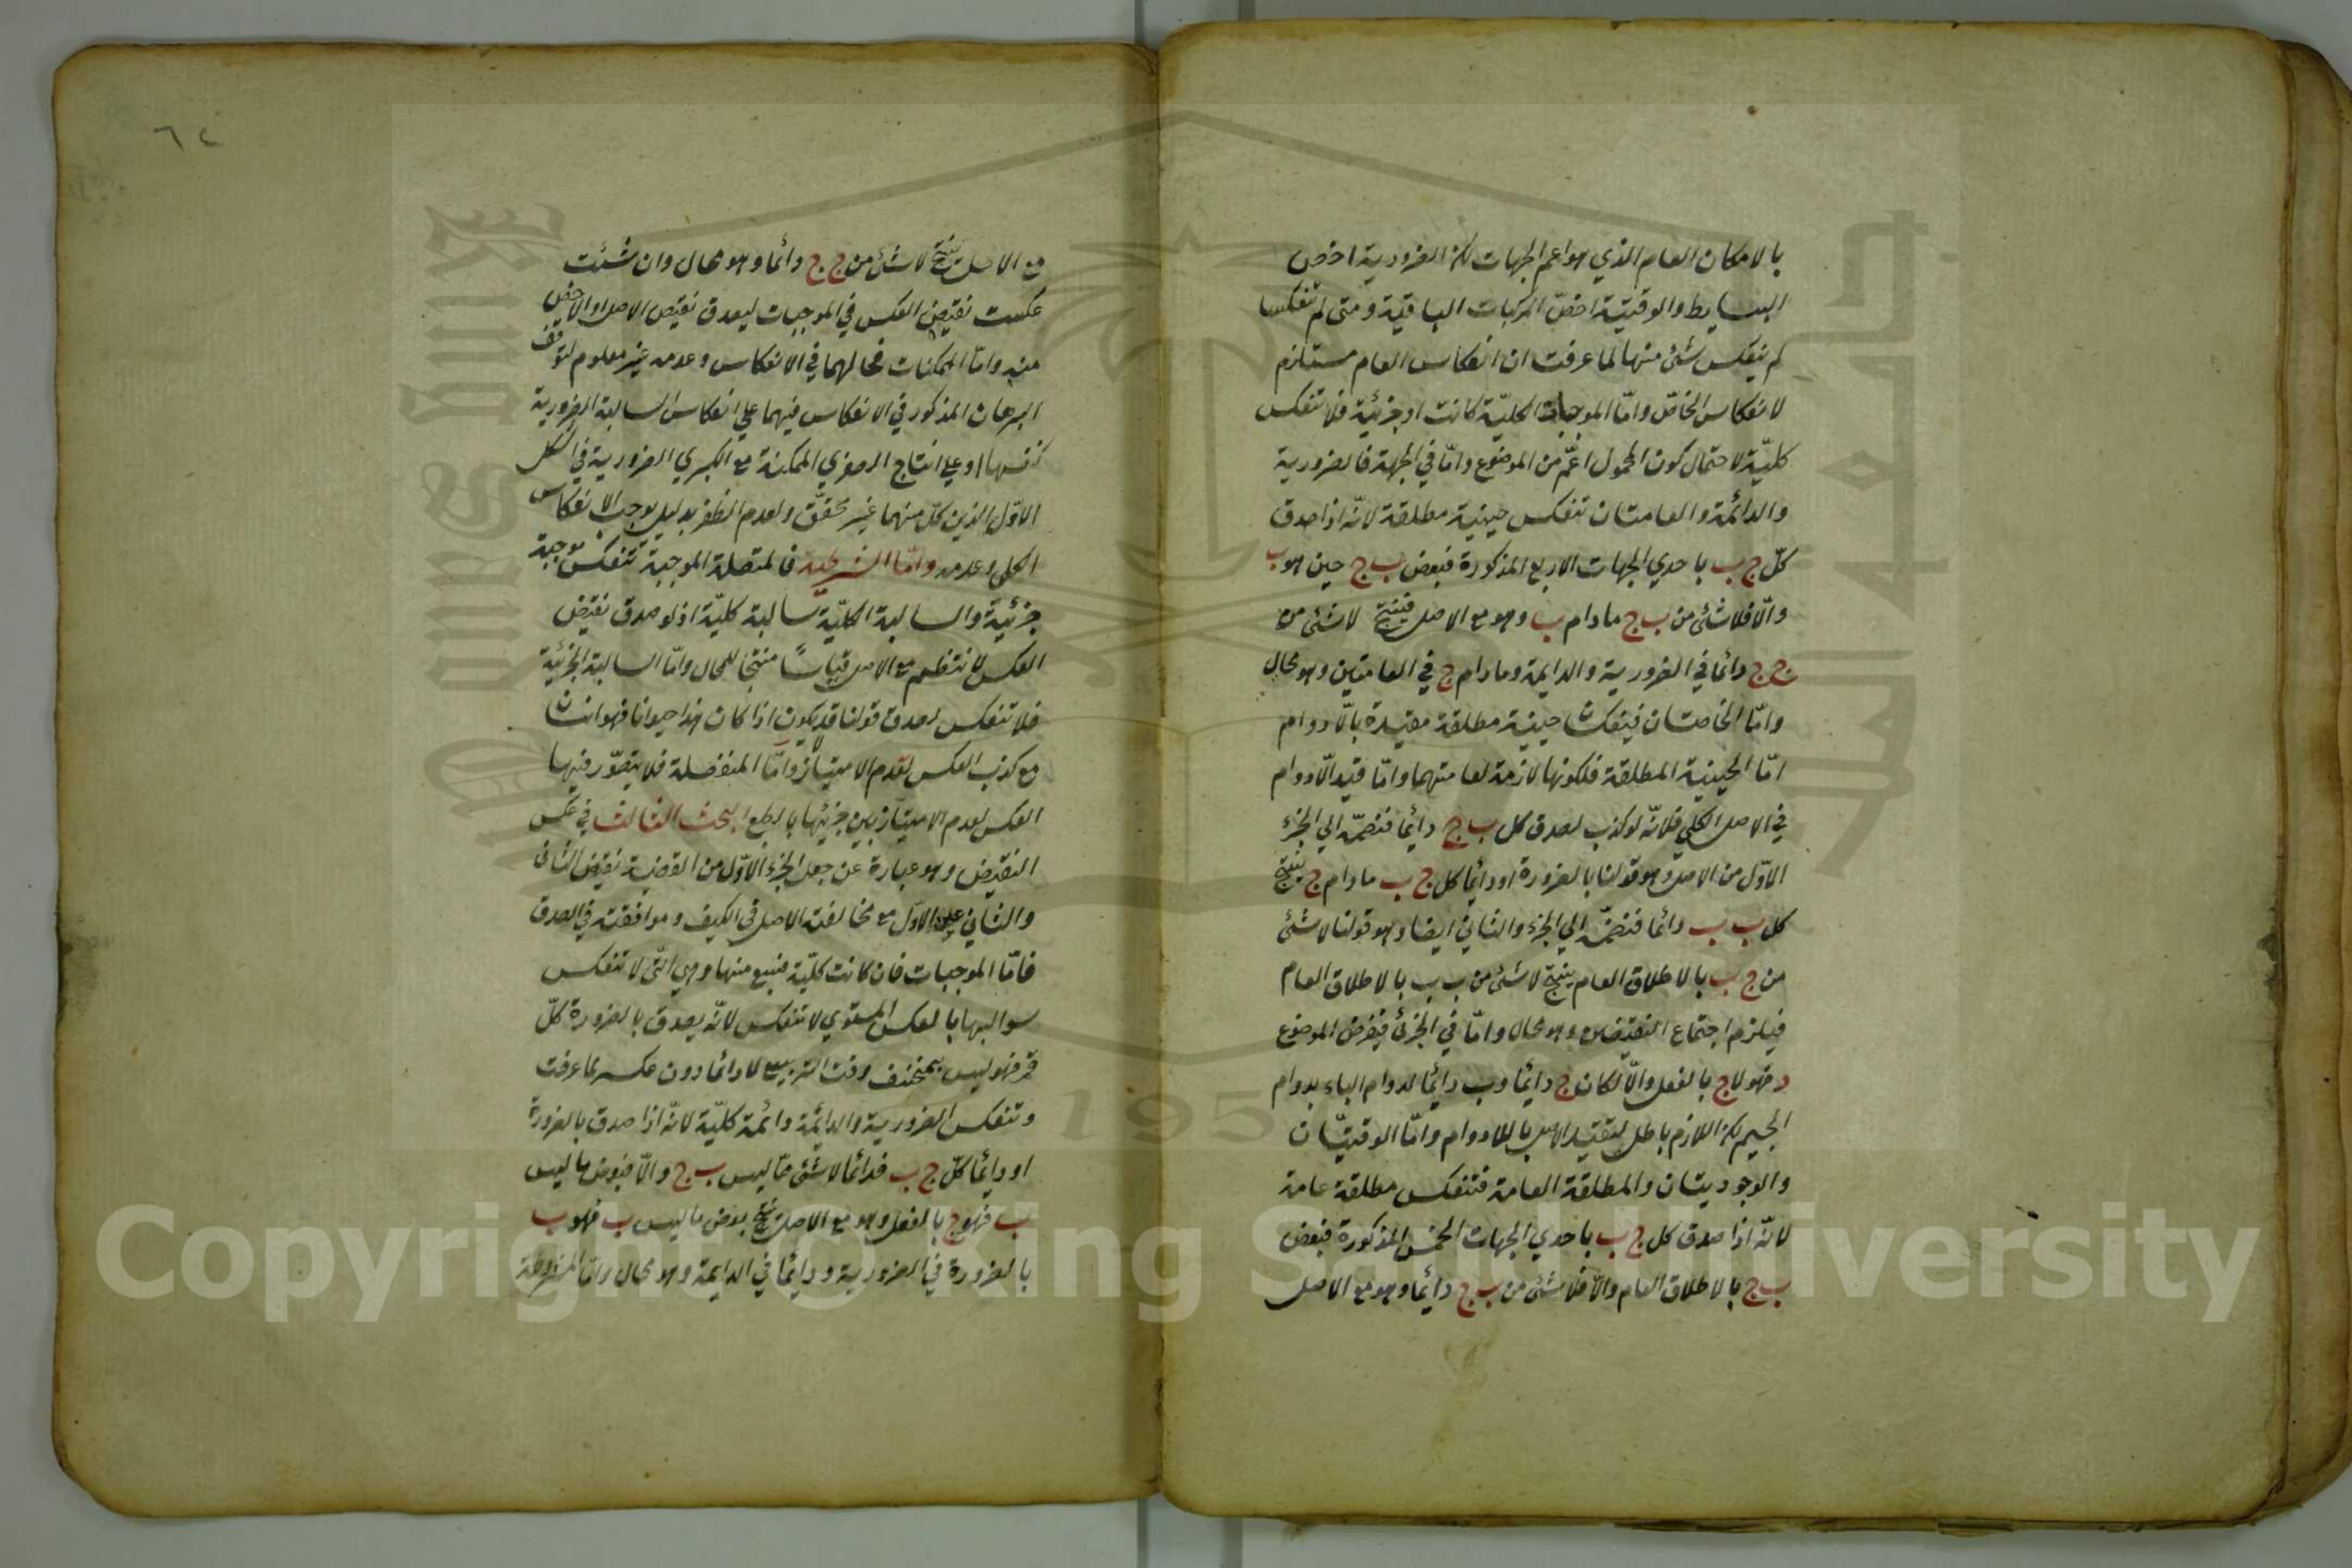 بالامكان العام الذي هو اعم الجهات لكن الضرورية اخص
البسايط والوقتية اخصّ المركبات الباقية ومتى لم تنعكسا
لم ينعكس شئ منها لما عرفت ان انعكاس العام مستلزم
لانعكاس الخاصّ وامّا الموجبات الكليّة كانت او جزئية فلا تنعكس
كليّة لاحتمال كون المحمول اعمّ من الموضوع وامّا في الجهة فالضرورية
والدائمة والعامتان تنعكس حينية مطلقة لانّه اذا صدق
كلّ ج ب باحدي الجهات الاربع المذكورة فبعض ب ج حين هو ب
والّا فلا شئ من ب ج مادام ب وهو مع الاصل فينتج لا شئ من
ج ج دائما في الضرورية والدايمة ومادام ج في العامتين وهو محال
وامّا الخاصتان فينعكسان حينية مطلقة مقيدة بالّادوام
امّا الحينية المطلقة فلكونها لازمة لعامتهما وامّا قيد الّادوام
في الاصل الكلي فلانّه لو كذب لصدق كل ب ج دائما فنضمّه الي الجزء
الاوّل من الاصل وهو قولنا بالضرورة او دائما كل ج ب مادام ج ينتج
كل ب ب دائما فنضمّه الي الجزء والثاني ايضا وهو قولنا لا شئ
من ج ب بالاطلاق العام ينتج لا شئ من ب ب بالاطلاق العام
فيلزم اجتماع النقيضين وهو محال وامّا في الجزئ فيفرض الموضوع
د فهو لا ج بالفعل والّا لكان ج دائما وب دائما لدوام الباء بدوام
الجيم لكن اللازم باطل لتقييد الاصل باللادوام وامّا الوقتيّتان
والوجوديتان والمطلقة العامة فتنعكس مطلقة عامة
لانّه اذا صدق كل ج ب باحدي الجهات الخمس المذكورة فبعض
ب ج بالاطلاق العام والّا فلا شئ من ب ج دائما وهو مع الاصل
٦٢
مع الاصل ينتج لا شئ من ج ج دائما وهو محال وان شئت
عكست نقيض العكس في الموجبات ليصدق نقيض الاصل او الاخص
منه وامّا الممكنات فحالهما في الانعكاس وعدمه غير معلوم لتوقف
البرهان المذكور في الانعكاس فيهما علي انعكاس السالبة الضرورية
كنفسها او علي انتاج الصغري الممكنة مع الكبري الضرورية في الشكل
الاوّل الذين كلّ منهما غير محقّق ولعدم الظفر بدليل يوجب الانعكاس
الكلي وعدمه وامّا الشرطية فالمتصلة الموجبة تنعكس موجبة
جزئية والسالبة الكليّة سالبة كليّة اذ لو صدق نقيض
العكس لانتظم مع الاصل قياسًا منتجا للمحال وامّا السالبة الجزئية
فلا تنعكس لصدق قولنا قد لا يكون اذا كان هذا حيوانا فهو انسان
مع كذب العكس لعدم الامتياز وامّا المنفصلة فلا يتصوّر فيها
العكس لعدم الامتياز بين جزئيها بالطبع البحث الثالث في عكس
النقيض وهو عبارة عن جعل الجزء الاوّل من القضية نقيض الثاني
والثاني عين الاوّل مع مخالفة الاصل في الكيف وموافقته في الصدق
فامّا الموجبات فان كانت كليّة فسبع منها وهي التي لا تنعكس
سوالبها بالعكس المستوي لا تنعكس لانّه يصدق بالضرورة كلّ
قمر فهو ليس بمنخسف وقت التربيع لا دائما دون عكسه لما عرفت
وتنعكس الضرورية والدائمة دائمة كليّة لانّه اذا صدق بالضرورة
او دائما كلّ ج ب فدائما لا شئ ممّا ليس ب ج والّا فبعض ما ليس
ب فهو ج بالفعل وهو مع الاصل ينتج بعض ما ليس ب فهو ب
بالضرورة في الضرورية ودائما في الدايمة وهو محال وامّا المشروطة
Copyright © King Saud University
1957